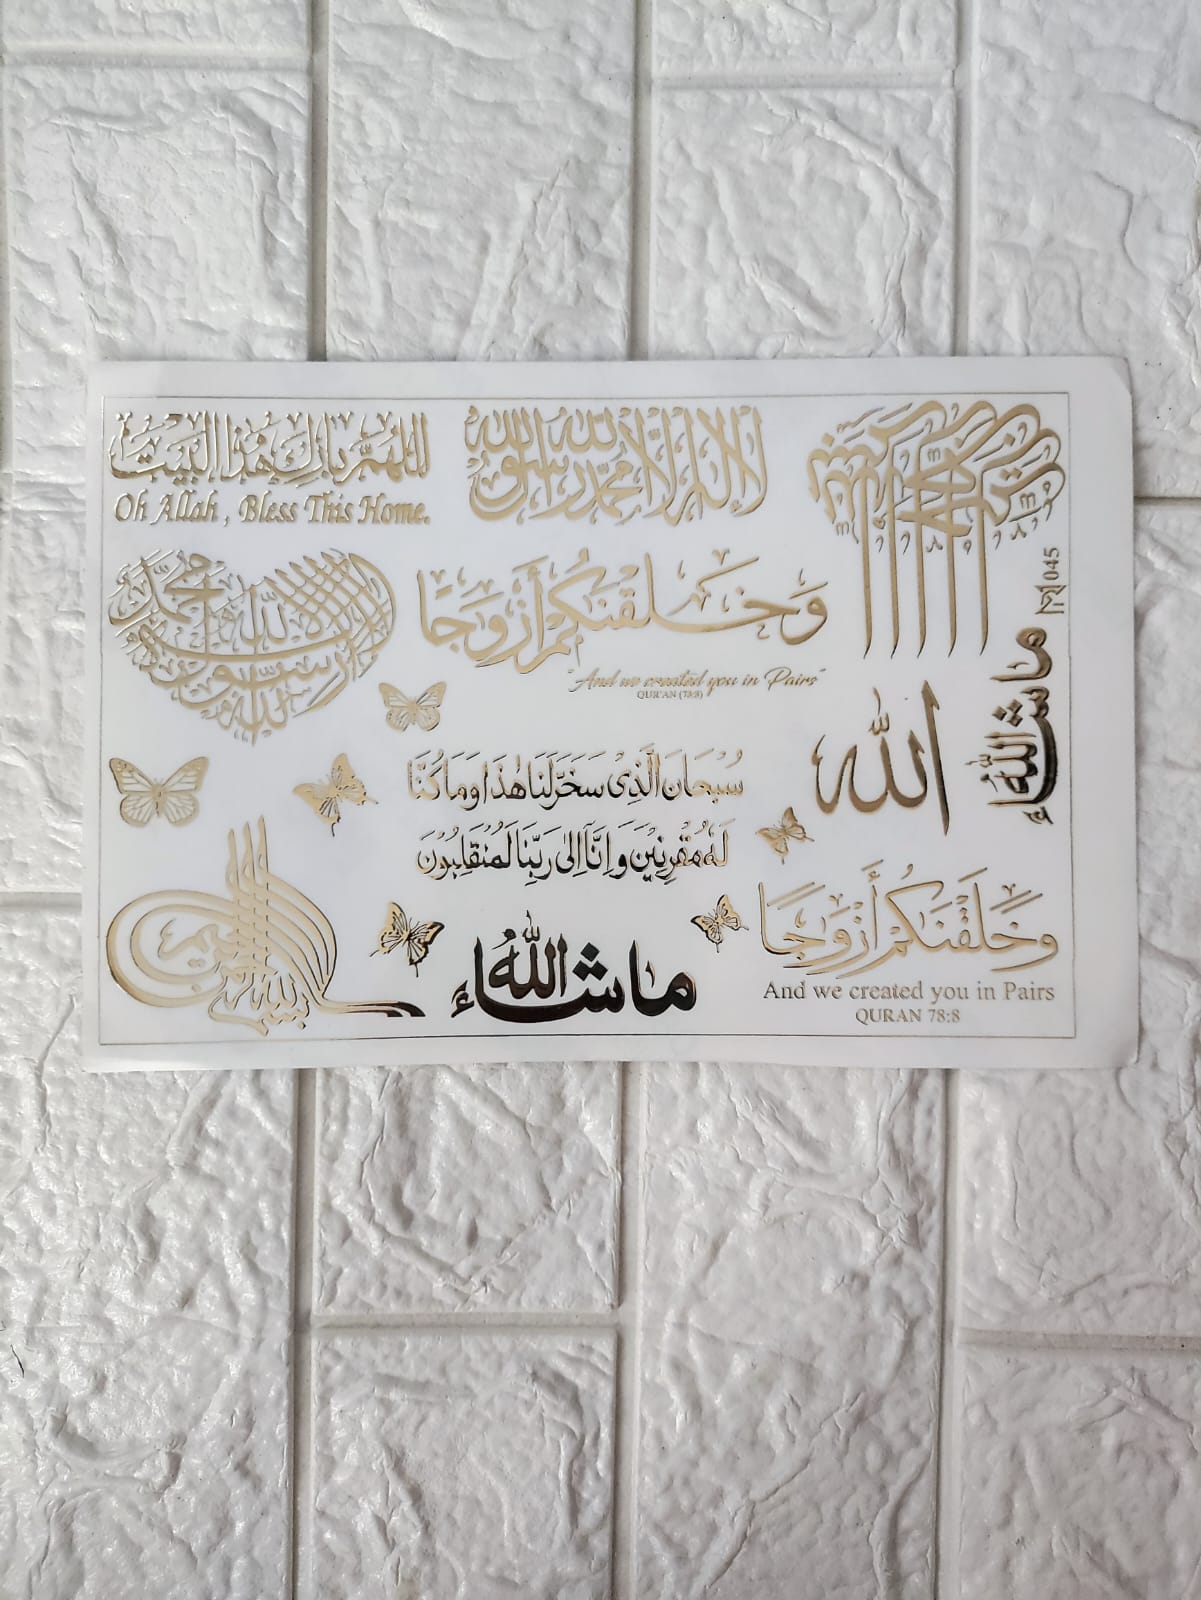 اللهم بارك هذا البيت
Oh Allah, Bless This Home.
لا إله إلا الله محمد رسول الله
لا إله إلا الله محمد رسول الله
045
وَخَلَقْنَكُمْ أَزْوَجًا
"And we created you in Pairs"
QUR'AN (78:8)
ما شاء الله
الله
سُبْحَانَ الَّذِى سَخَّرَ لَنَا هٰذَا وَمَا كُنَّا
لَهُ مُقْرِنِيْنَ وَاِنَّآ اِلٰى رَبِّنَا لَمُنْقَلِبُوْنَ
ما شاء اللهُ
وَخَلَقْنَكُمْ أَزْوَجًا
And we created you in Pairs
QURAN 78:8